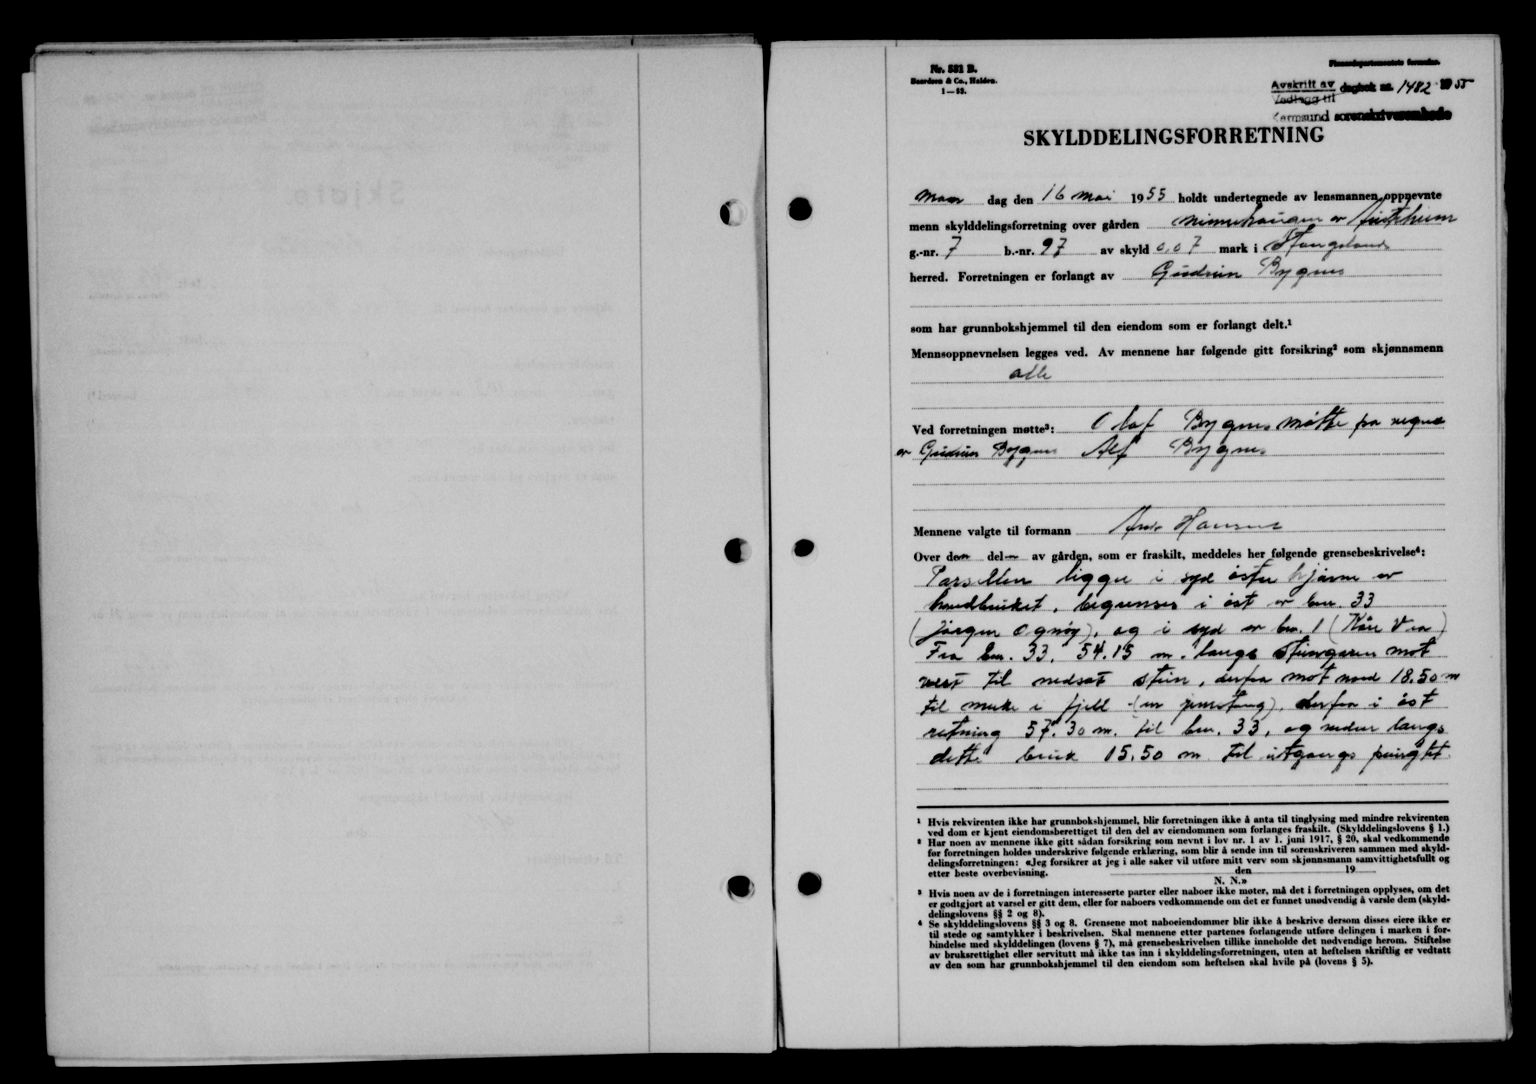 Nr. 581 B.
Baardsen & Co., Halden.
1—53.
Finansdepartementets formular.
Avskrift av
Vedlegg til
dagbok nr. 1482 1955
Karmsund sorenskriverembede
SKYLDDELINGSFORRETNING
Man dag den 16 mai 1955 holdt undertegnede av lensmannen oppnevnte
menn skylddelingsforretning over gården
g.-nr. 7 b.-nr. 97 av skyld 0.07 mark i Stangeland
herred. Forretningen er forlangt av Gudrun Bygnes
som har grunnbokshjemmel til den eiendom som er forlangt delt.¹
Mennsoppnevnelsen legges ved. Av mennene har følgende gitt forsikring² som skjønnsmenn
alle
Ved forretningen møtte³: Olaf Bygnes møtte for
av Gudrun Bygnes Alf Bygnes
Mennene valgte til formann Hansen
Over den del av gården, som er fraskilt, meddeles her følgende grensebeskrivelse⁴:
Parsellen ligger i syd øster hjørne av
hovedbruket, begrenses i øst av bnr. 33
(Jørgen Ognøy), og i syd av bnr. 1 (Kåre Vea)
Fra bnr. 33. 54.15 m. langs steingaren mot
vest til nedsat stein, derfra mot nord 18.50 m
til merke i fjell, derfra i øst
retning 57.30 m. til bnr. 33, og videre langs
dette bruk 15.50 m til utgangs punktet
¹ Hvis rekvirenten ikke har grunnbokshjemmel, blir forretningen ikke å anta til tinglysing med mindre rekvirenten
ved dom er kjent eiendomsberettiget til den del av eiendommen som forlanges fraskilt. (Skylddelingslovens § 1.)
² Har noen av mennene ikke gitt sådan forsikring som nevnt i lov nr. 1 av 1. juni 1917, § 20, skal vedkommende
før forretningen holdes underskrive følgende erklæring, som blir å sende inn til sorenskriveren sammen med skyld-
delingsforretningen: «Jeg forsikrer at jeg i alle saker vil utføre mitt verv som skjønnsmann samvittighetsfullt og
etter beste overbevisning. den 19
N. N.»
³ Hvis noen av de i forretningen interesserte parter eller naboer ikke møter, må det i forretningen opplyses, om det
er godtgjort at varsel er gitt dem, eller for naboers vedkommende om det er funnet unødvendig å varsle dem (skyld-
delingslovens §§ 2 og 8).
⁴ Se skylddelingslovens §§ 3 og 8. Grensene mot naboeiendommer blir ikke å beskrive dersom disses eiere ikke er
til stede og samtykker i beskrivelsen. Skal mennene etter partenes forlangende utføre delingen i marken i for-
bindelse med skylddelingen (lovens § 7), må grensebeskrivelsen tillike inneholde det nødvendige herom. Stiftelse
av bruksrettighet eller servitutt må ikke tas inn i skylddelingsforretningen, uten at heftelsen skriftlig er vedtatt
av den som har grunnbokshjemmel til den eiendom som heftelsen skal hvile på (lovens § 5).